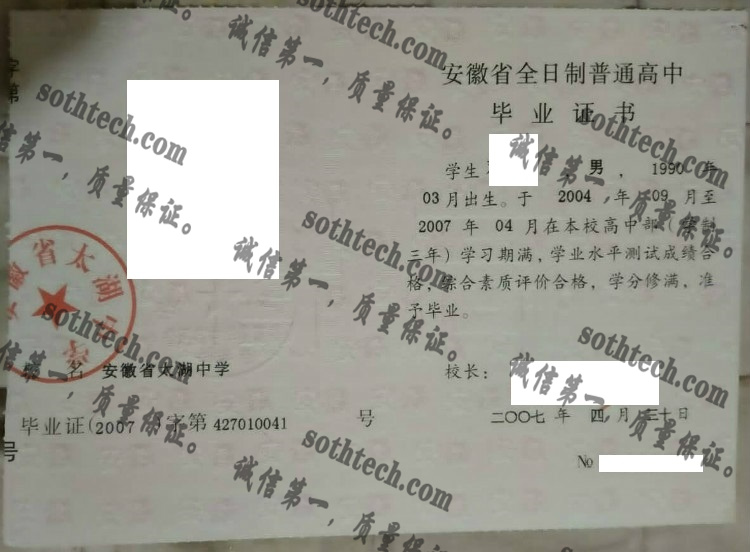 安徽省全日制普通高中
毕业证书
学生 , 男 , 1990 年
03 月出生。于 2004 年 09 月至
2007 年 04 月在本校高中部(学制
三年)学习期满,学业水平测试成绩合
格,综合素质评价合格,学分修满,准
予毕业。
校长:
二〇〇七 年 四 月 三十 日
№
安徽省太湖
校 名 安徽省太湖中学
毕业证(2007 )字第 427010041 号
字第
号
sothtech.com
诚信第一,质量保证。
sothtech.com
诚信第一,质量保证。
sothtech.com
诚信第一,质量保证。
sothtech.com
诚信第一,质量保证。
sothtech.com
诚信第一,质量保证。
sothtech.com
诚信第一,质量保证。
sothtech.com
诚信第一,质量保证。